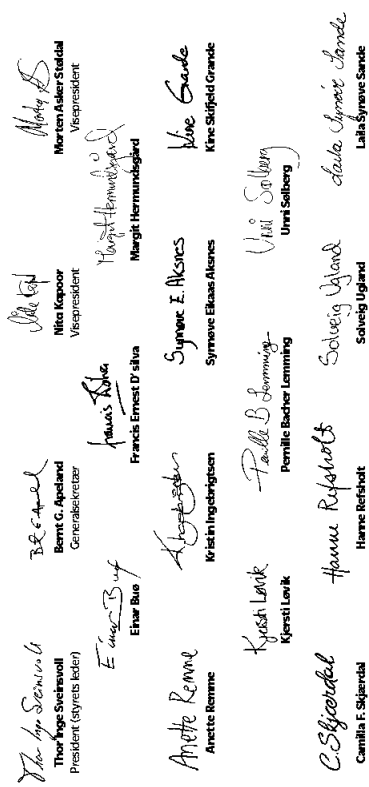 Thor Inge Sveinsvoll
Thor Inge Sveinsvoll
President (styrets leder)
BRG Apel
Bernt G. Apeland
Generalsekretær
Nita Kapoor
Visepresident
Morten Asker Stoldal
Visepresident
Einar Buø
Einar Buø
Francis Ernest D' silva
Margit Hermundsgård
Margit Hermundsgård
Anette Remme
Anette Remme
K Ingebrigtsen
Kristin Ingebrigtsen
Synnøve E. Aksnes
Synnøve Eikaas Aksnes
Kine Grande
Kine Skifjeld Grande
Kjersti Løvik
Kjersti Løvik
Pernille B Lemming
Pernille Bacher Lemming
Unni Solberg
Unni Solberg
C. Skjærdal
Camilla F. Skjærdal
Hanne Refsholt
Hanne Refsholt
Solveig Ugland
Solveig Ugland
Laila Synøve Sande
Laila Synøve Sande